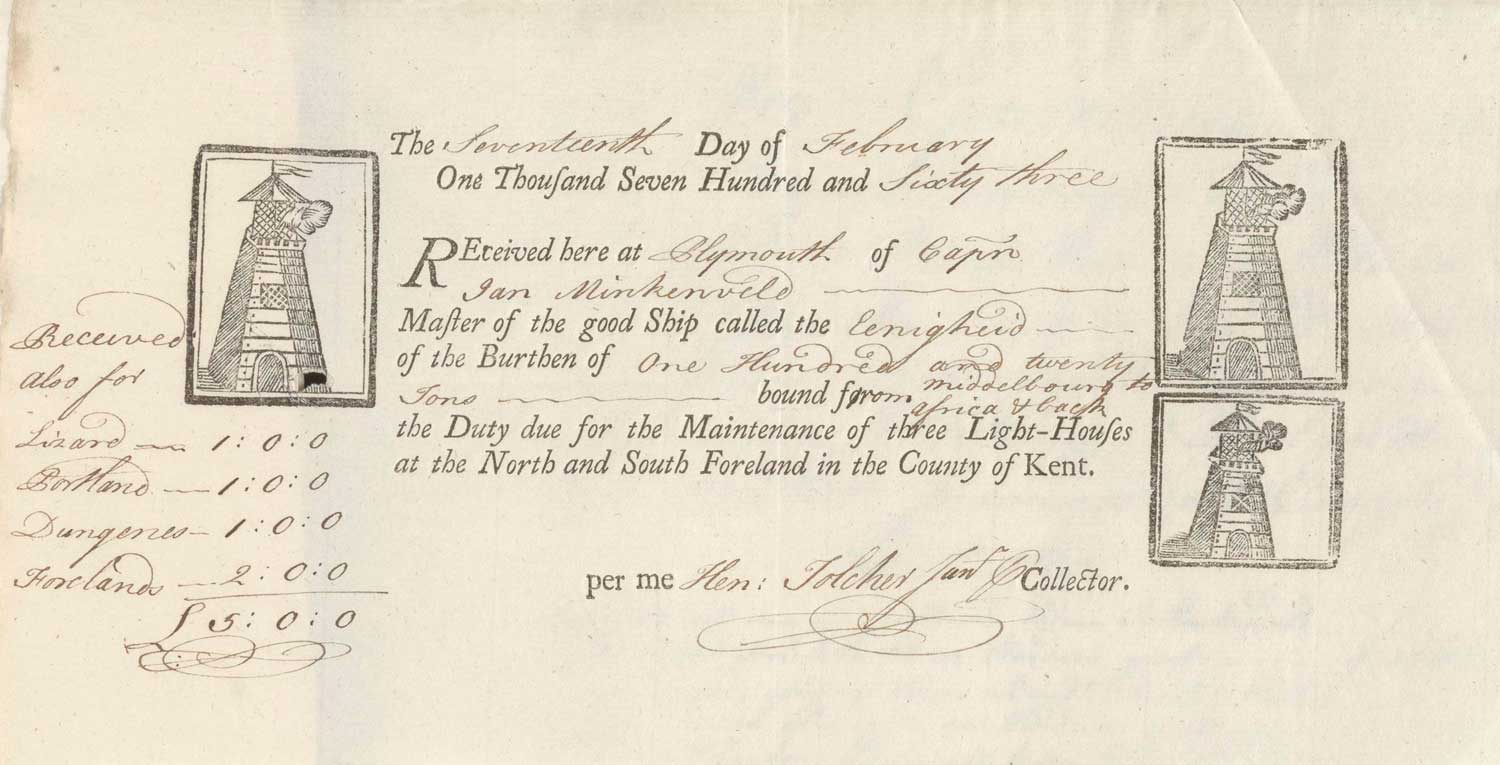 The Seventeenth Day of February
One Thouſand Seven Hundred and Sixty three
REceived here at Plymouth of Capn
Jan Minkenveld
Maſter of the good Ship called the Eenigheid
of the Burthen of One Hundred and twenty
Tons bound from middelbourg to
africa & back
the Duty due for the Maintenance of three Light-Houſes
at the North and South Foreland in the County of Kent.
per me Hen: Tolcher Junr Collector.
Received
also for
Lizard — 1:0:0
Portland — 1:0:0
Dungenes — 1:0:0
Forelands — 2:0:0
£ 5:0:0